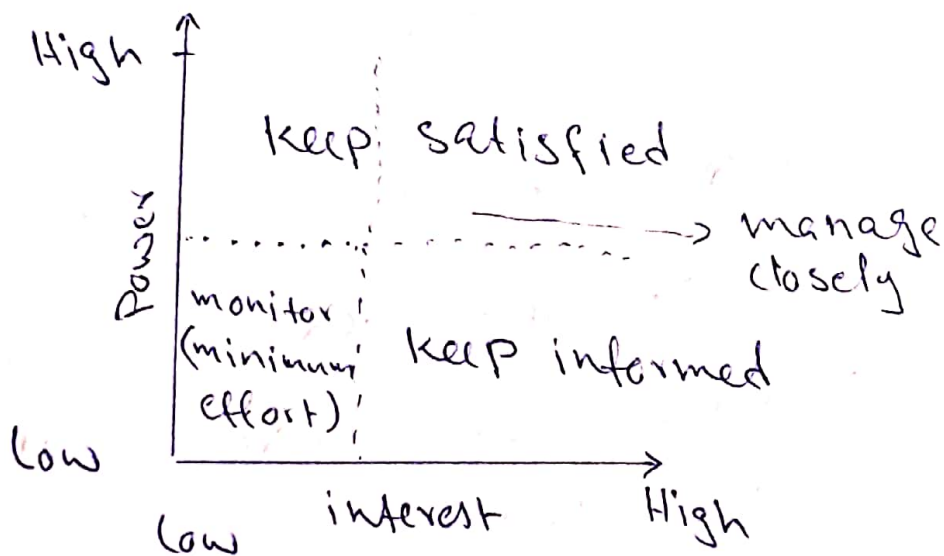 High
keep satisfied
Power
manage
closely
monitor
(minimum
effort)
keep informed
Low
interest
High
Low